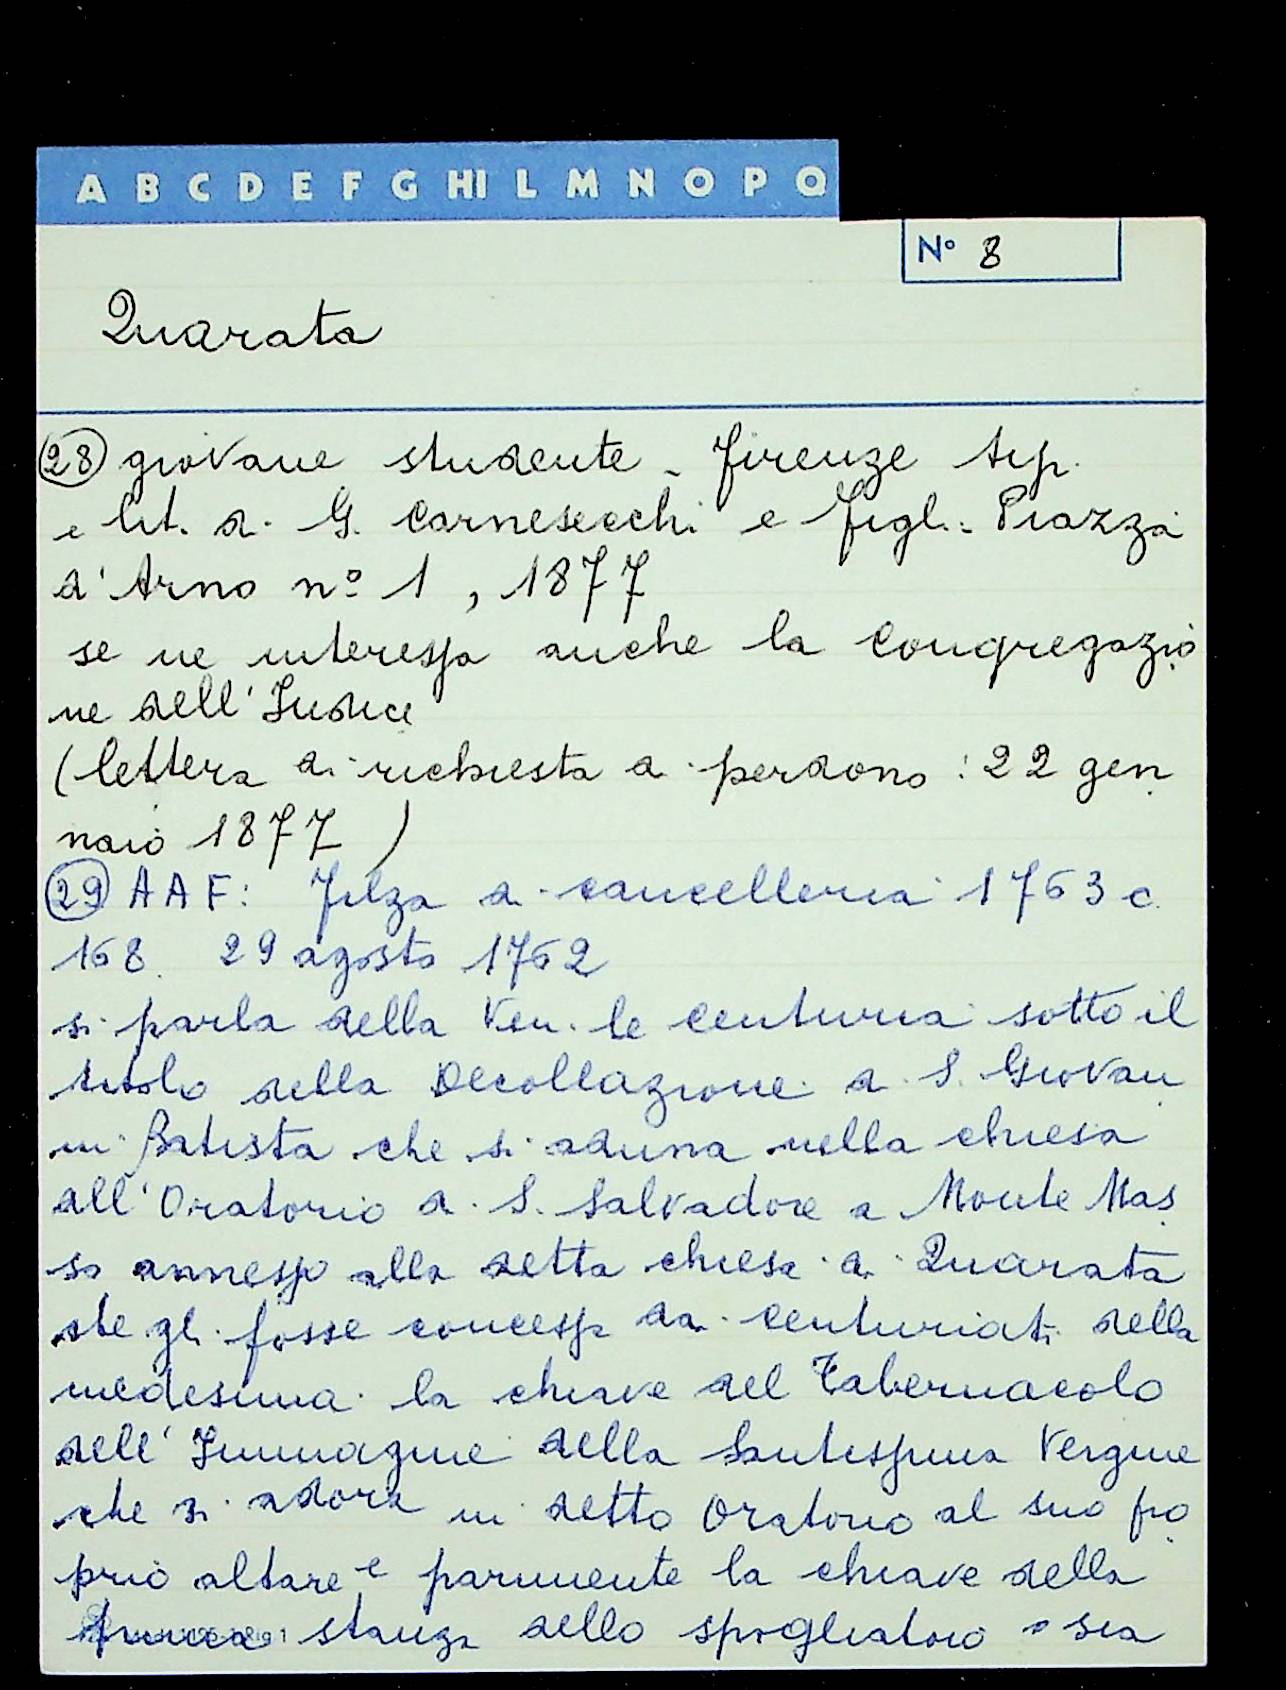 A B C D E F G HI L M N O P Q
N° 8
Quarata
28 giovane studente - Firenze tip.
e lit. di G. Carnesecchi e figli: Piazza
d'Arno n° 1, 1877
se ne interessa anche la Congregazio
ne dell'Indice
(lettera di richiesta di perdono: 22 gen
naio 1877)
29 AAF: Filza di cancelleria 1763 c.
168. 29 agosto 1762
si parla della Ven.le centuria sotto il
titolo della Decollazione di S. Giovan
ni Batista che si aduna nella chiesa
all'Oratorio di S. Salvadore a Monte Mas
so annesso alla detta chiesa di Quarata
che gli fosse concessa dai centuriati della
medesima la chiave del Tabernacolo
dell'Immagine della Santissima Vergine
che si adora in detto Oratorio al suo pro
prio altare e parimente la chiave della
prima stanza dello spogliatoio o sia